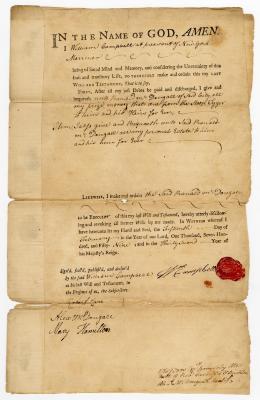 IN THE NAME OF GOD, AMEN.
I William Campbell at present of New York
Marriner
being of sound Mind and Memory, and considering the Uncertainty of this
frail and transitory Life, do therefore make and ordain this my LAST
WILL AND TESTAMENT, That is to say,
FIRST, After all my just Debts be paid and discharged, I give and
bequeath unto Ranald mcDougall of said City, all
my prize money
to him and his Heirs for Ever
Item I also give and Bequeath unto said Ranald
mcDougall all my personal Estate to him
and his heirs for Ever
LIKEWISE, I make and ordain the said Ranald mcDougall
to be EXECUTOR of this my last Will and Testament, hereby utterly disallowing
and revoking all former Wills by me made. IN WITNESS whereof I
have hereunto set my Hand and Seal, the Day of
in the Year of our Lord, One Thousand, Seven Hundred,
and Fifty Nine and in the Year of
his Majesty's Reign.
Sign'd, sealed, publish'd, and declar'd
by the said William Campbell
as his last Will and Testament, in
the Presence of us, the Subscribers
Wm Campbell
Alexr McDougall
Mary Hamilton